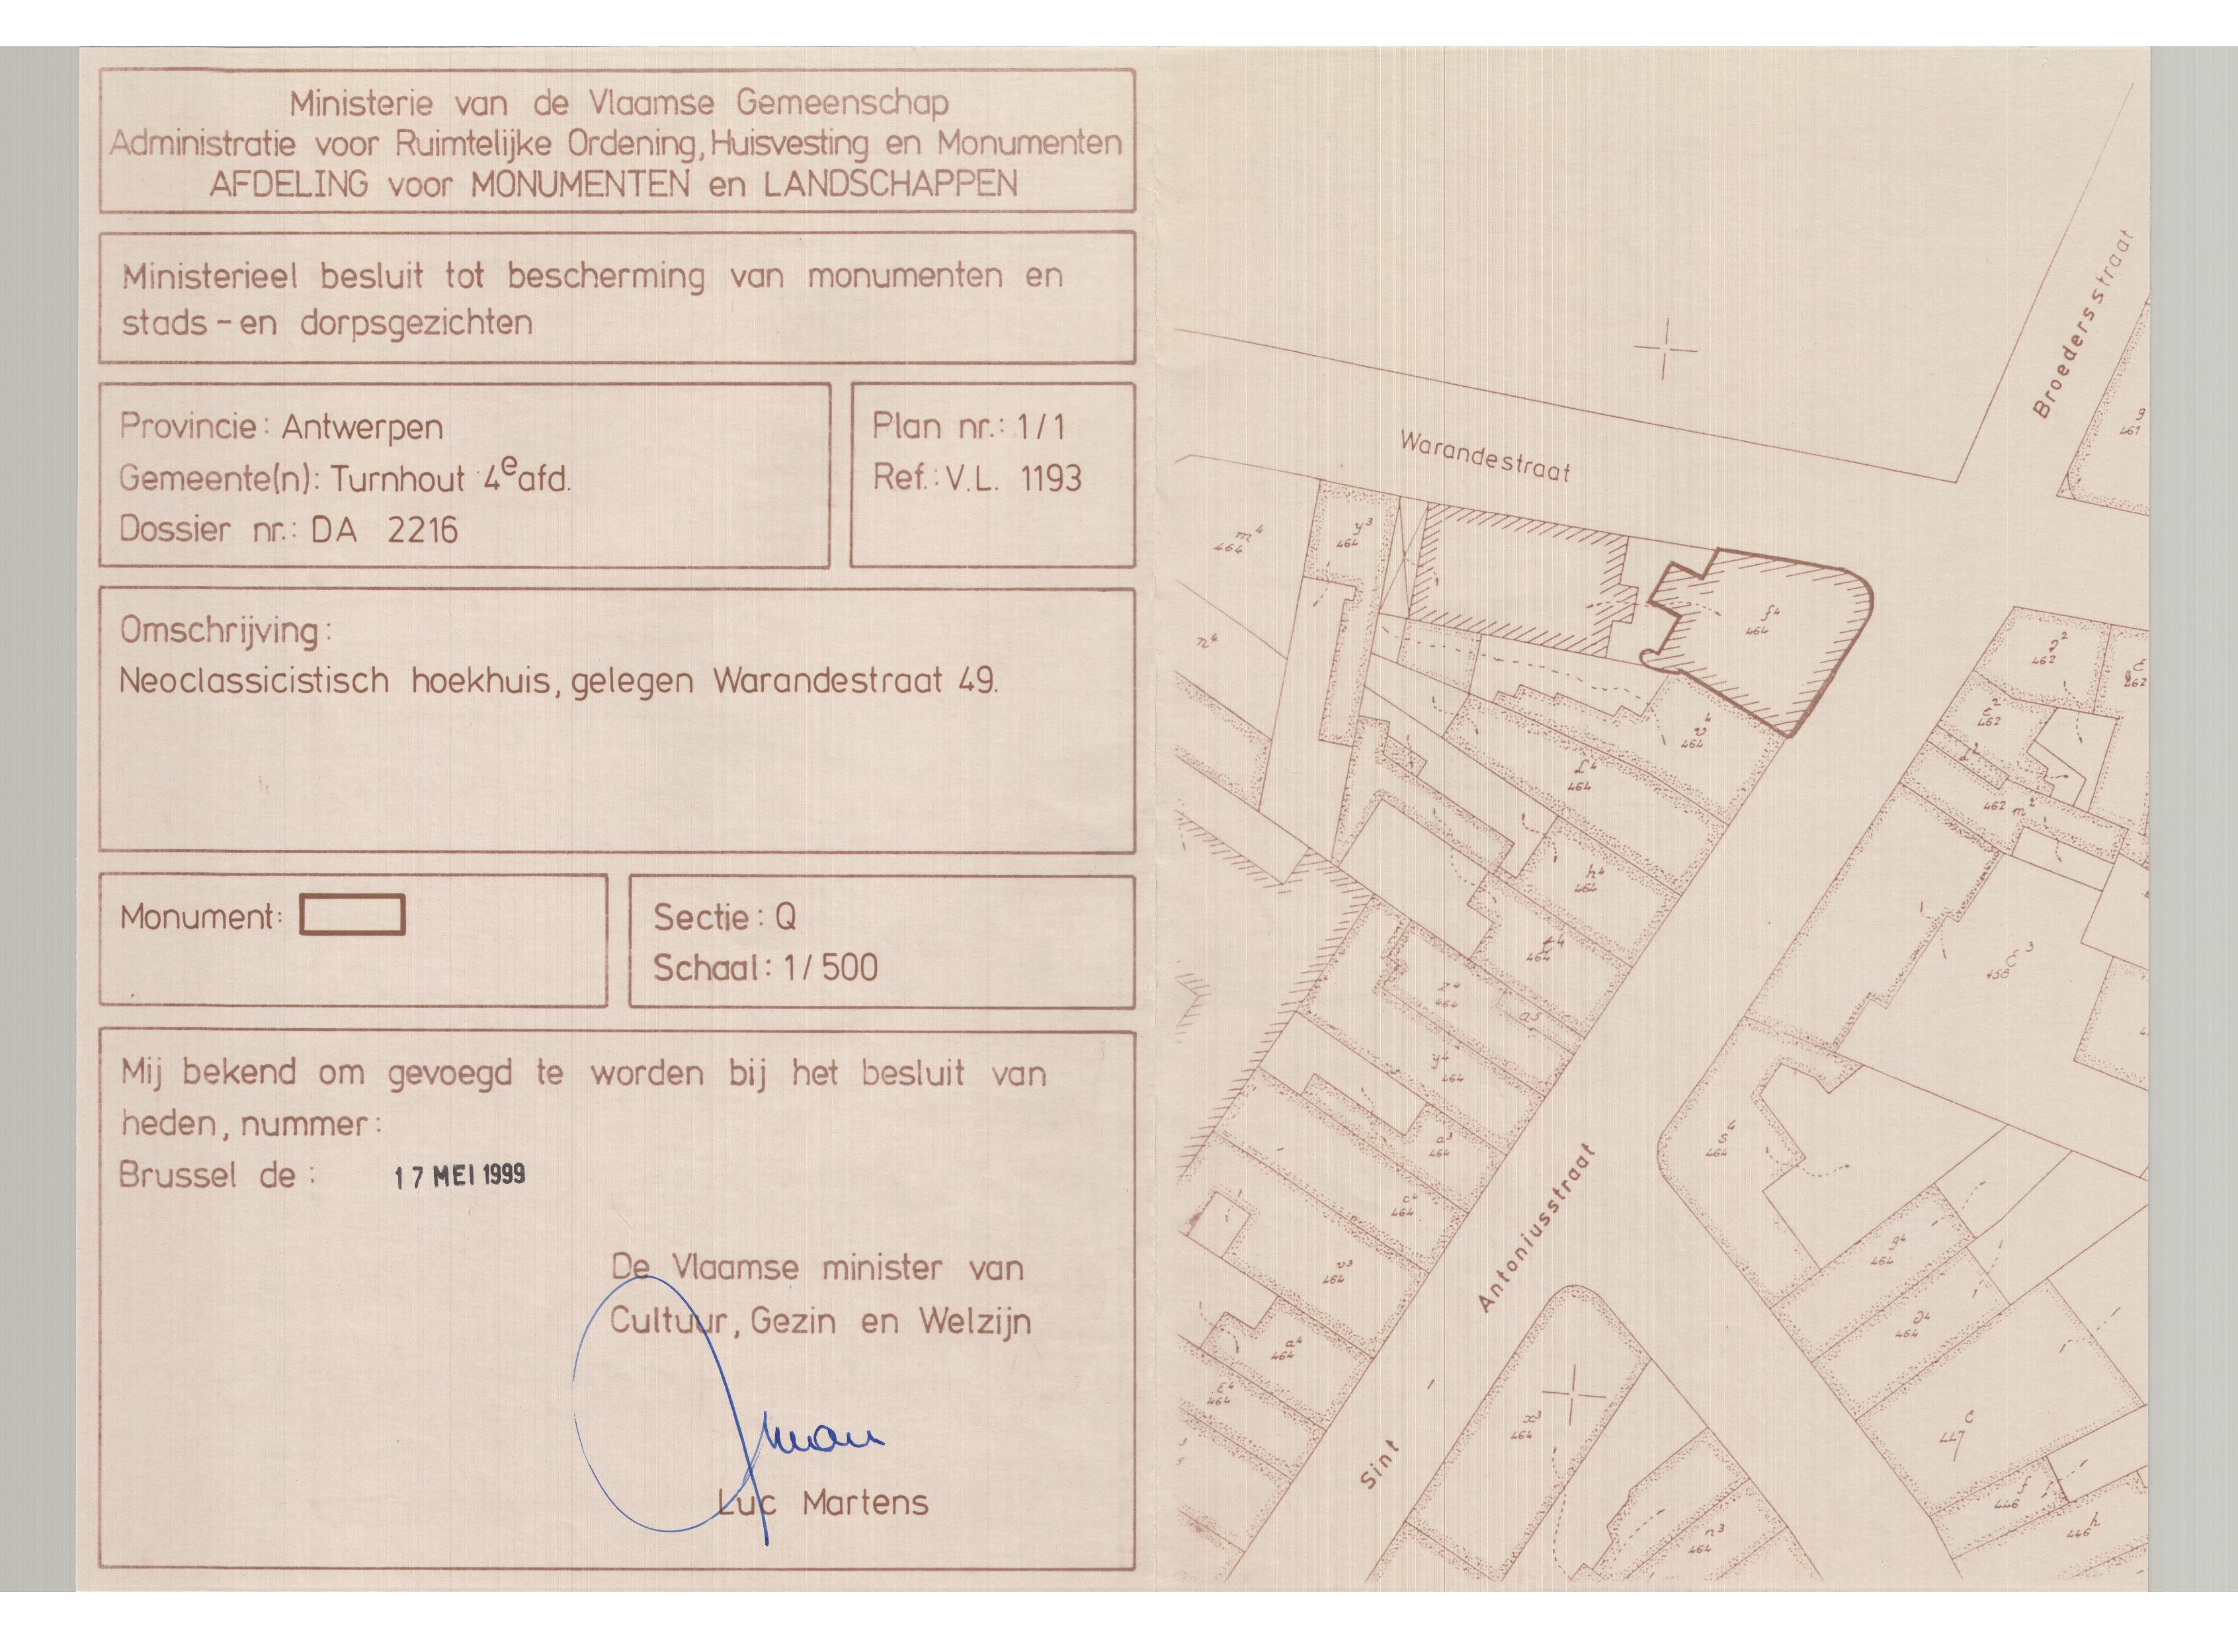 Ministerie van de Vlaamse Gemeenschap
Administratie voor Ruimtelijke Ordening, Huisvesting en Monumenten
AFDELING voor MONUMENTEN en LANDSCHAPPEN
Ministerieel besluit tot bescherming van monumenten en
stads-en dorpsgezichten
Provincie: Antwerpen
Gemeente(n): Turnhout 4e afd.
Dossier nr.: DA 2216
Plan nr.: 1/1
Ref.: V.L. 1193
Omschrijving:
Neoclassicistisch hoekhuis, gelegen Warandestraat 49.
Monument:
Sectie: Q
Schaal: 1/500
Mij bekend om gevoegd te worden bij het besluit van
heden, nummer:
Brussel de: 17 MEI 1999
De Vlaamse minister van
Cultuur, Gezin en Welzijn
Luc Martens
Broedersstraat
g
461
Warandestraat
m4
464
y3
464
n4
f4
464
462
462
462
v4
464
L4
464
462 m2
h4
464
t4
464
458
z4
464
a5
y4
464
s4
464
464
c4
464
v3
464
g4
464
464
a4
464
464
Sint Antoniusstraat
464
c
447
n3
464
446 f
446 h